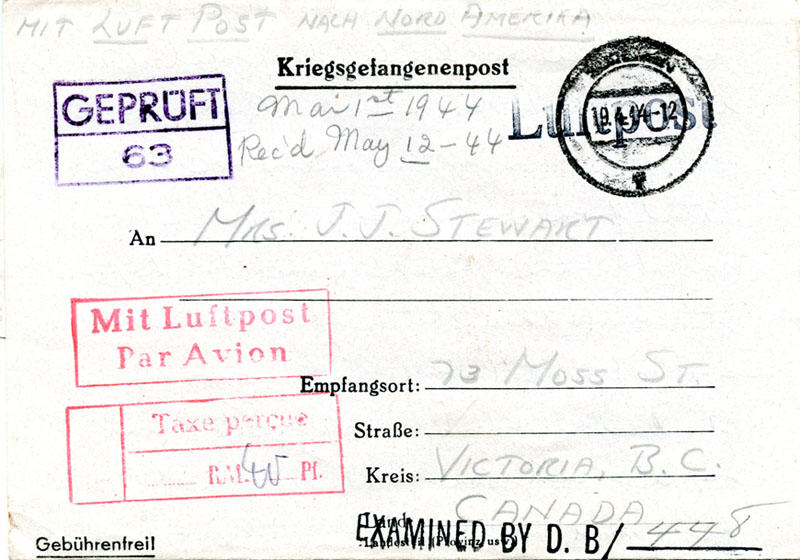 MIT LUFT POST NACH NORD AMERIKA
Kriegsgefangenenpost
GEPRÜFT
63
Mar 1st 1944
Rec'd May 12-44
Luftpost
An Mrs. J. J. STEWART
Mit Luftpost
Par Avion
Empfangsort: 73 MOSS ST.
Taxe perçue
Straße:
RM. 40 Pf.
Kreis: VICTORIA, B.C.
Land: CANADA
Landesteil (Provinz usw.)
EXAMINED BY D. B/ 448
Gebührenfrei!